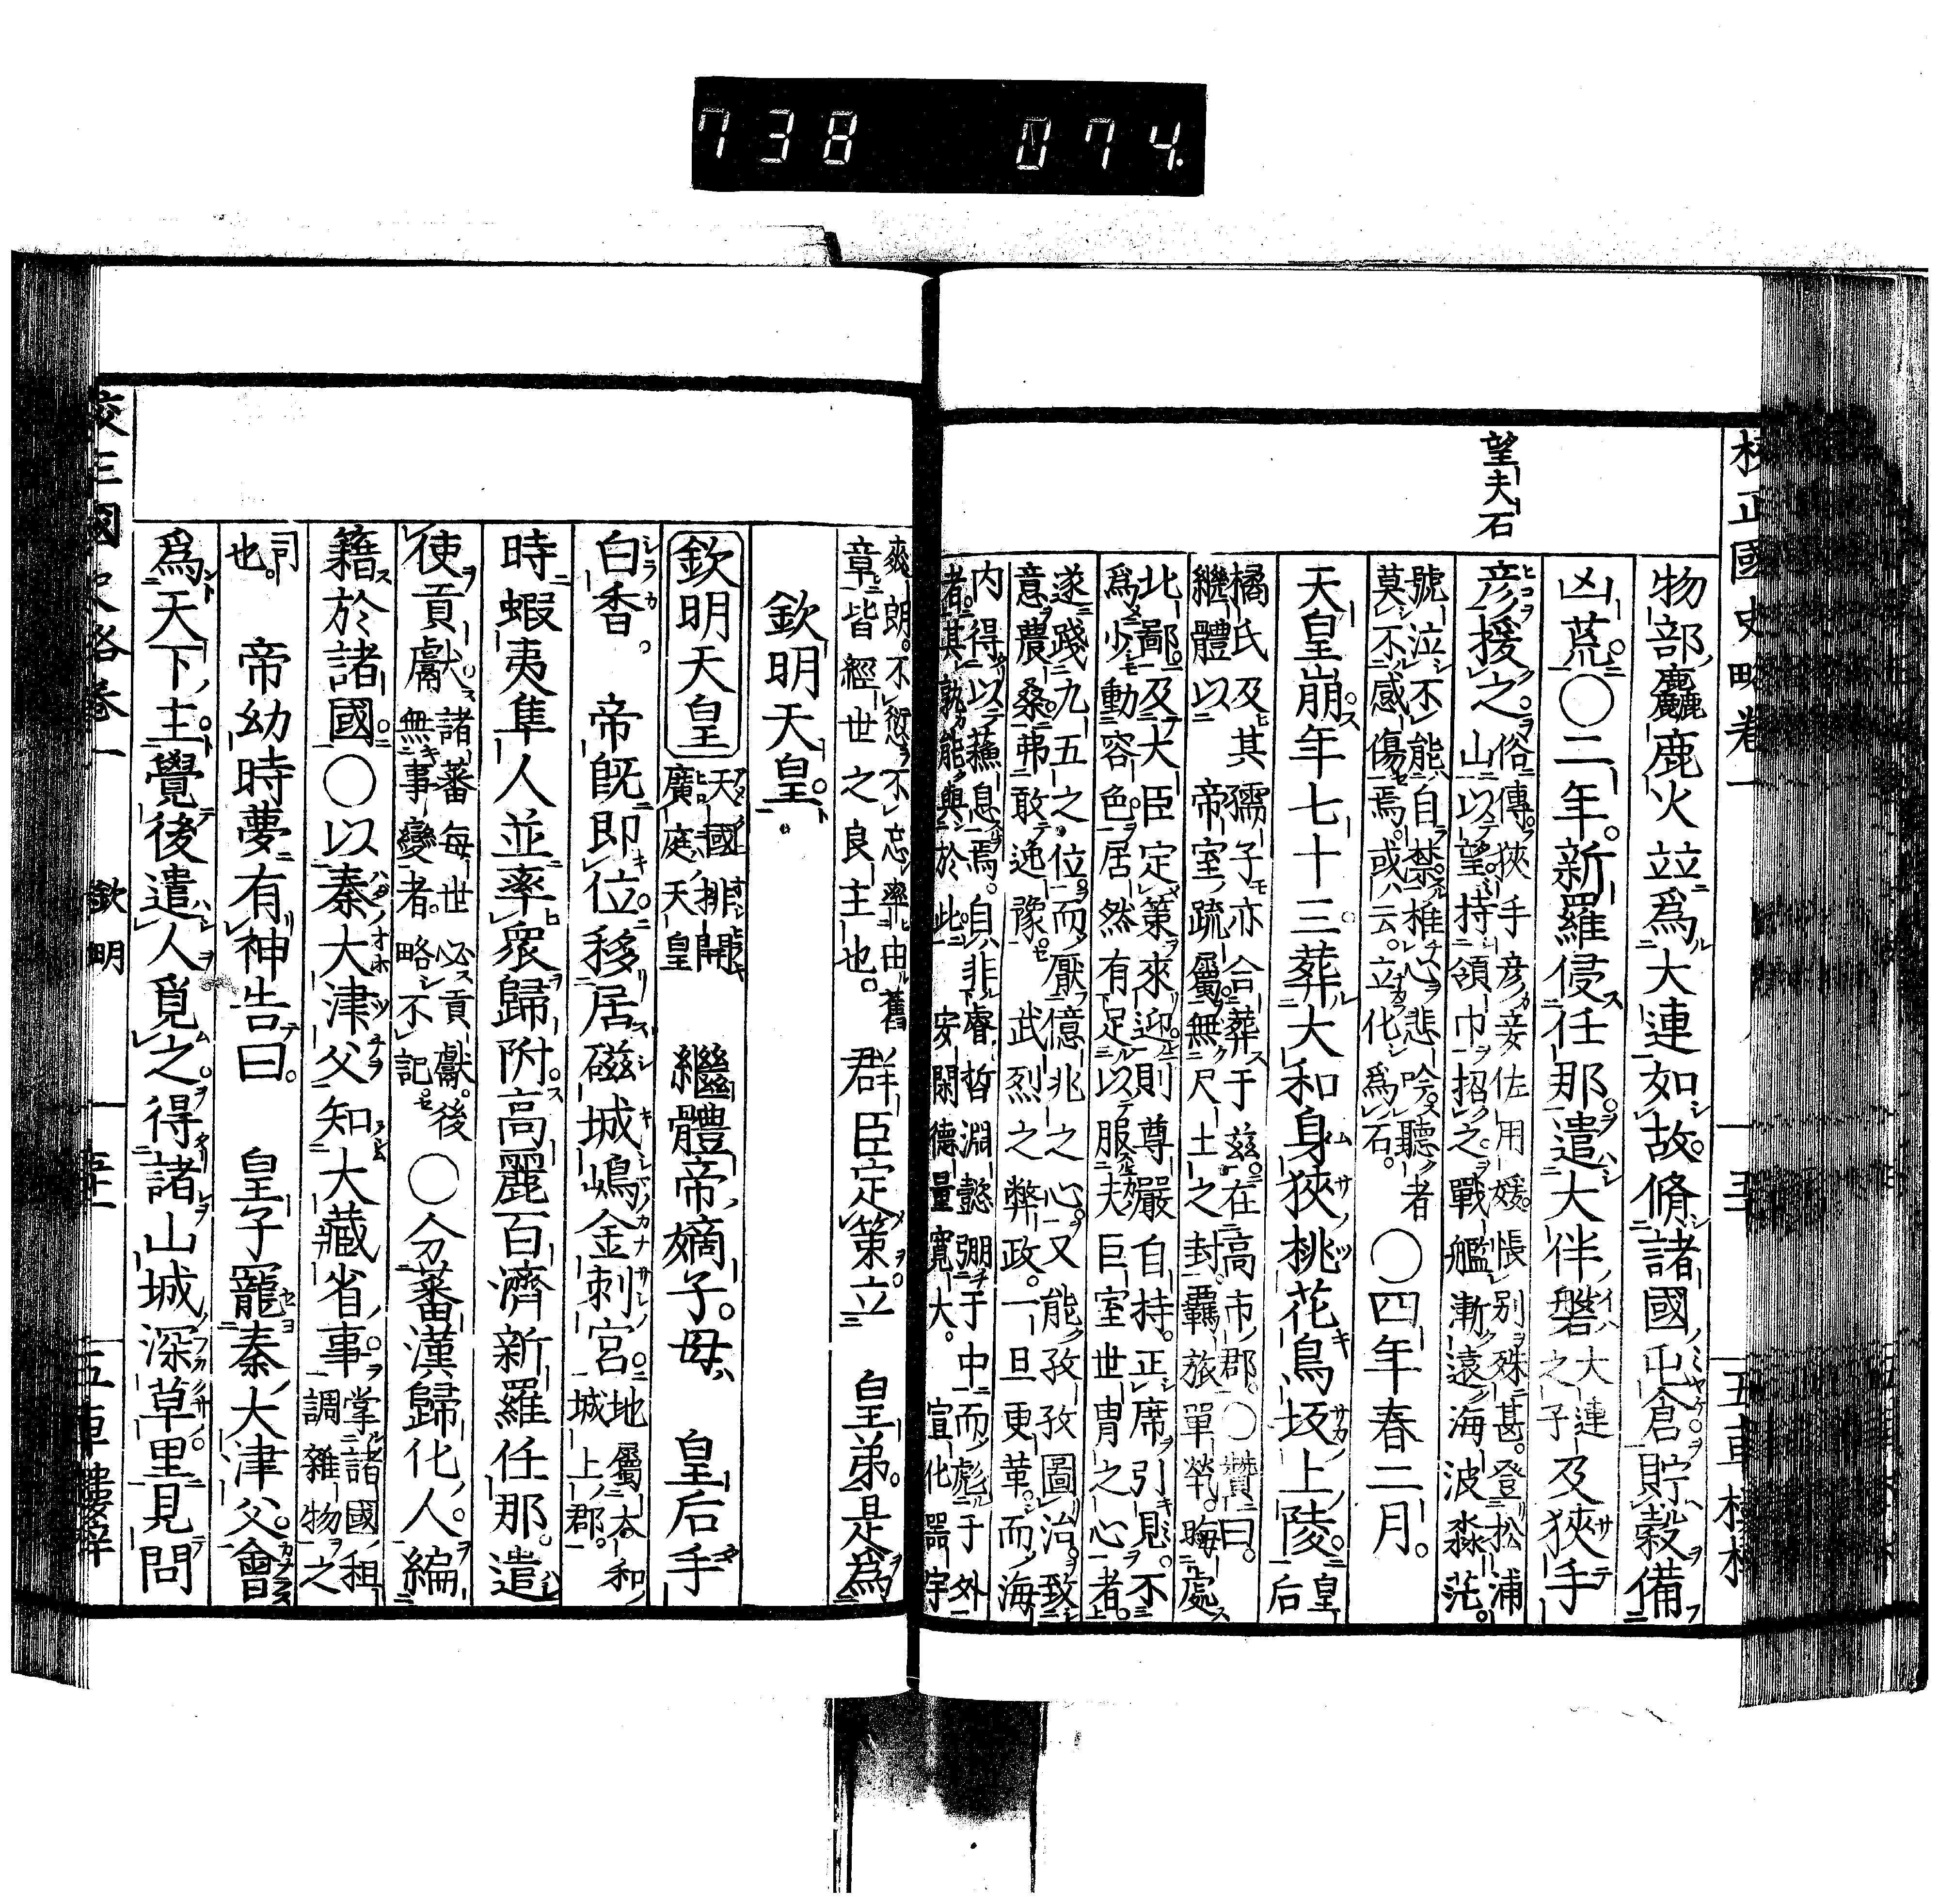 738 074.
校正國史略卷一
望夫石
物部麤鹿火竝爲大連如故脩諸國屯倉貯穀備
凶荒○二年新羅侵任那遣大伴磐大連之子及狹手
彦援之俗傳狹手彦妾佐用媛悵別殊甚登松浦
山以望持領巾招之戰艦漸遠海波淼茫
號泣不能自禁椎心悲吟聽者
莫不感傷焉或云立化爲石○四年春二月
天皇崩年七十三葬大和身狹桃花鳥坂上陵皇后
橘氏及其孺子亦合葬于茲在高市郡○贊曰
繼體以帝室疏屬無尺土之封羇旅單煢晦處
北鄙及大臣定策來迎則尊嚴自持正席引見不
爲少動容色居然有足以服夫巨室世冑之心者
遂踐九五之位而厭億兆之心又能孜孜圖治致
意農桑弗敢逸豫武烈之弊政一旦更革而海
内得以蘓息焉自非睿哲淵懿弸于中而彪于外
者其孰能與於此安閑德量寛大宣化器宇
爽朗不愆不忘率由舊
章皆經世之良主也群臣定策立皇弟是爲
欽明天皇
欽明天皇 天國排開廣庭天皇 繼體帝嫡子母皇后手
白香帝既即位移居磯城嶋金刺宮地屬大和城上郡
時蝦夷隼人並率衆歸附高麗百濟新羅任那遣
使貢獻諸蕃毎世必貢獻後無事變者略不記○分蕃漢歸化人編
籍於諸國○以秦大津父知大藏省事掌諸國租調雜物之
司也帝幼時夢有神告曰皇子寵秦大津父會
爲天下主覺後遣人覓之得諸山城深草里見問
欽明